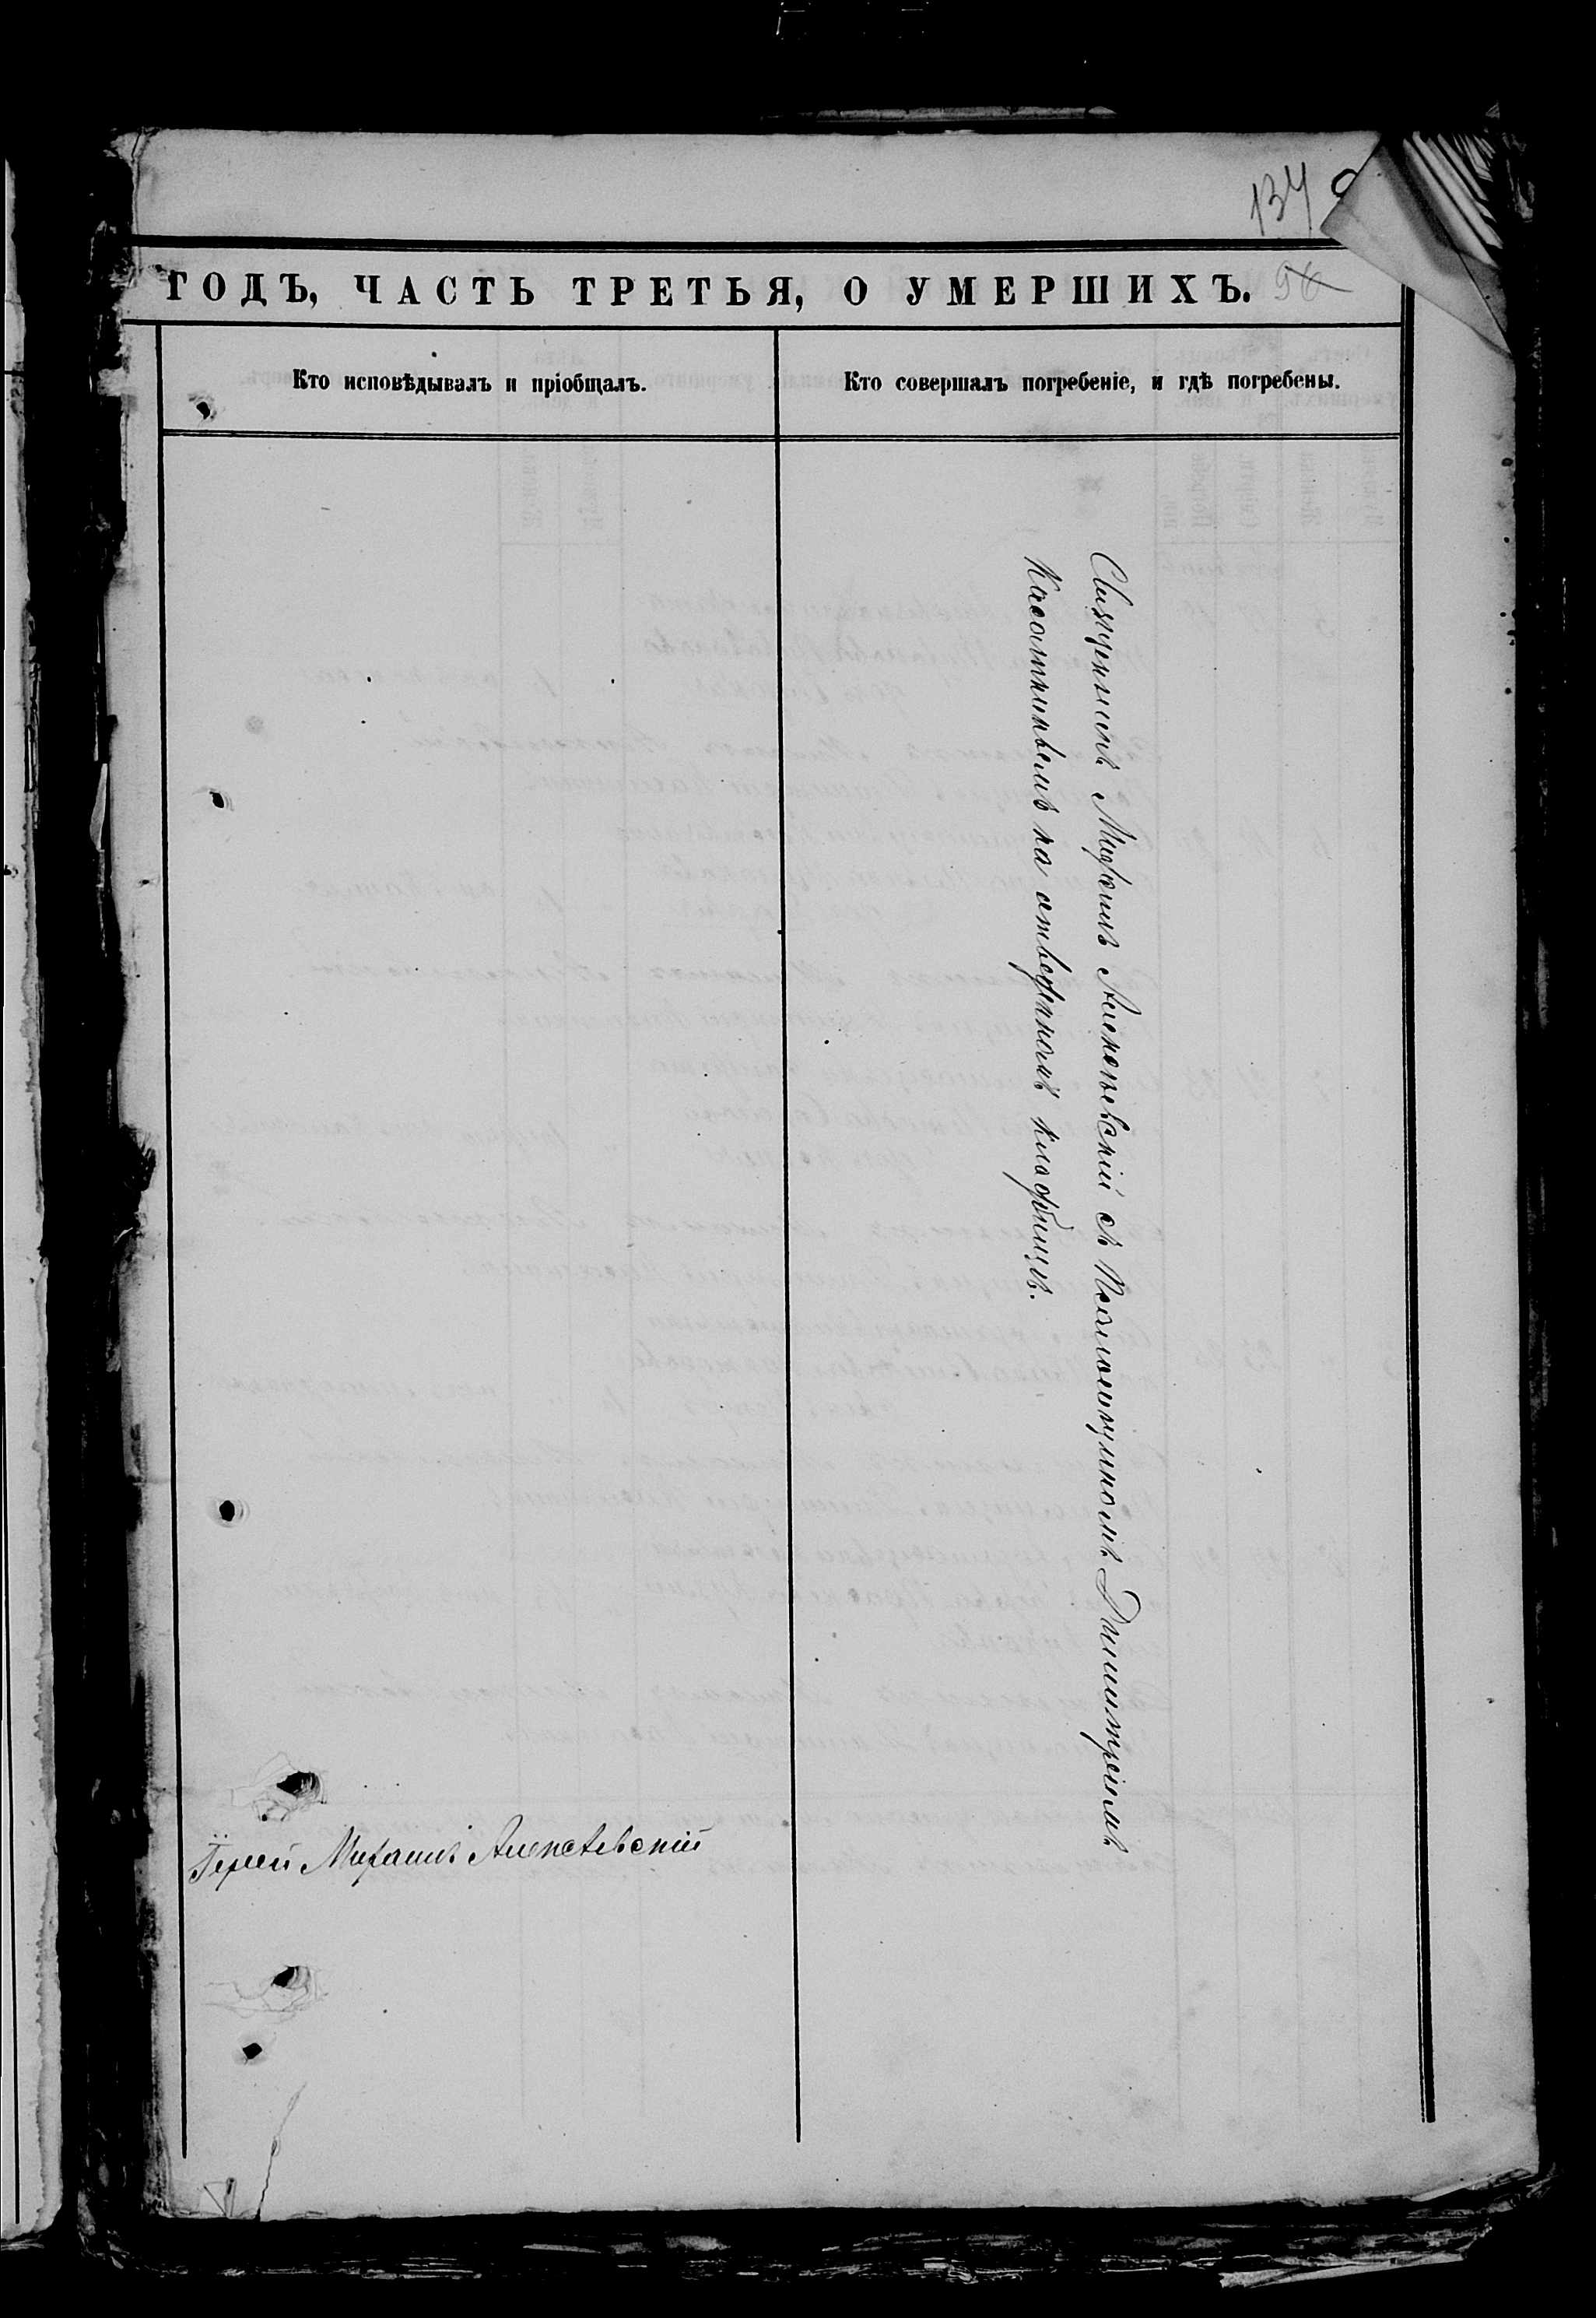 134
ГОДЪ, ЧАСТЬ ТРЕТЬЯ, О УМЕРШИХЪ. 96
Кто исповѣдывалъ и пріобщалъ.
Кто совершалъ погребеніе, и гдѣ погребены.
Священникъ Михаилъ Алексѣевскій съ Псаломщикомъ Димитріемъ
на отведенномъ кладбищѣ.
Іерей Михаилъ Алексѣевскій